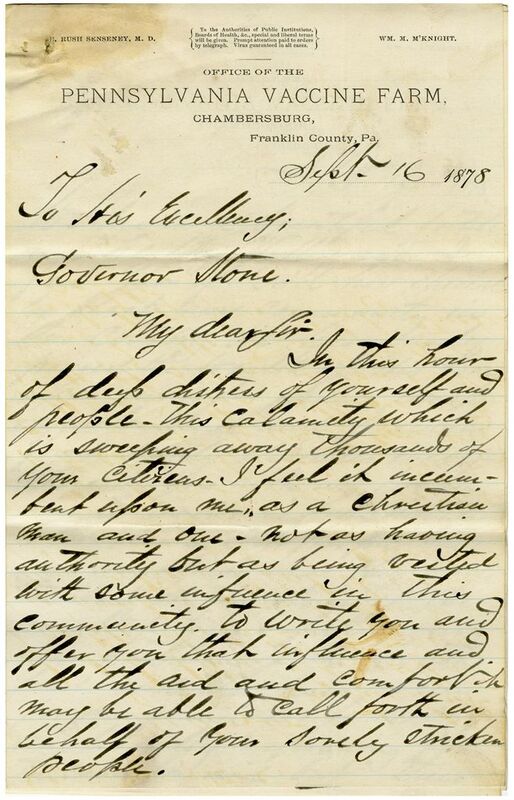 RUSH SENSENEY, M. D.
To the Authorities of Public Institutions,
Boards of Health, &c., special and liberal terms
will be given. Prompt attention paid to orders
by telegraph. Virus guaranteed in all cases.
WM. M. M'KNIGHT.
OFFICE OF THE
PENNSYLVANIA VACCINE FARM,
CHAMBERSBURG,
Franklin County, Pa.
Sept. 16 1878
To His Excellency;
Governor Stone.
My dear Sir.
In this hour
of deep distress of yourself and
people - this calamity which
is sweeping away thousands of
your citizens - I feel it incum-
bent upon me, as a christian
man and one - not as having
authority but as being vested
with some influence in this
community to write you and
offer you that influence and
all the aid and comfort it
may be able to call forth in
behalf of your sorely stricken
people.